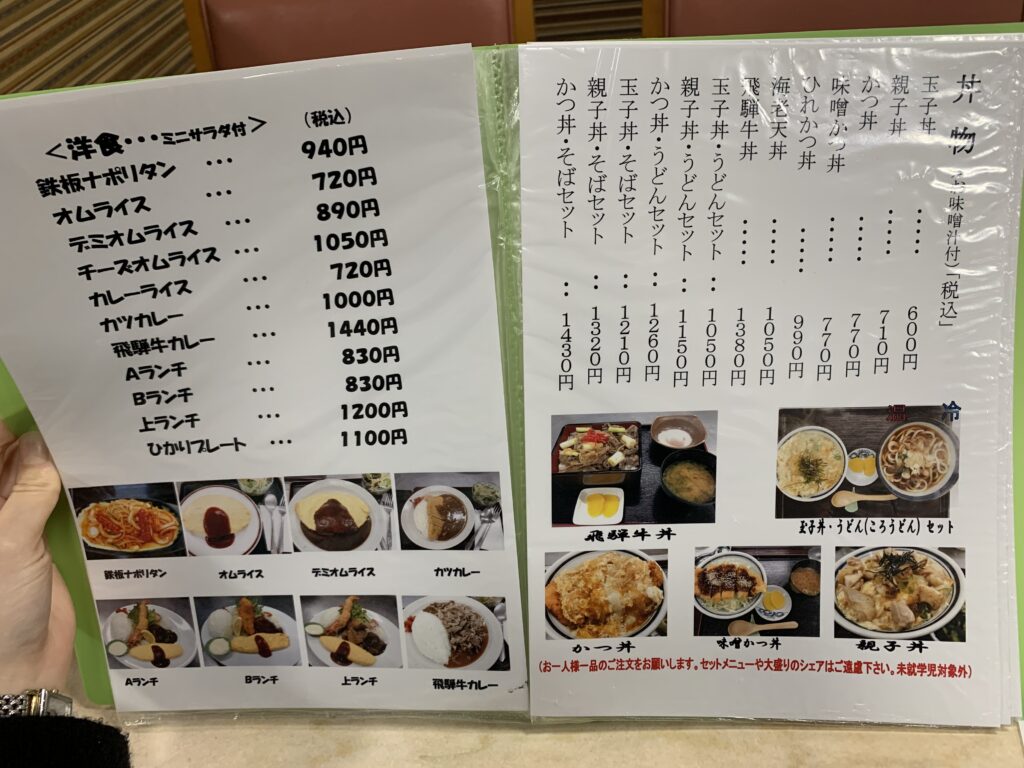 <洋食・・・ミニサラダ付> (税込)
鉄板ナポリタン ・・・ 940円
オムライス ・・・ 720円
デミオムライス ・・・ 890円
チーズオムライス ・・・ 1050円
カレーライス ・・・ 720円
カツカレー ・・・ 1000円
飛騨牛カレー ・・・ 1440円
Aランチ ・・・ 830円
Bランチ ・・・ 830円
上ランチ ・・・ 1200円
ひかりプレート ・・・ 1100円
鉄板ナポリタン オムライス デミオムライス カツカレー
Aランチ Bランチ 上ランチ 飛騨牛カレー
丼物 (お味噌汁付)「税込」
玉子丼 ・・・・ 600円
親子丼 ・・・・ 710円
かつ丼 ・・・・ 770円
味噌かつ丼 ・・・・ 770円
ひれかつ丼 ・・・・ 990円
海老天丼 ・・・・・ 1050円
飛騨牛丼 ・・・・・ 1380円
玉子丼・うどんセット ・・ 1050円
親子丼・うどんセット ・・ 1150円
かつ丼・うどんセット ・・ 1260円
玉子丼・そばセット ・・ 1210円
親子丼・そばセット ・・ 1320円
かつ丼・そばセット ・・ 1430円
温 冷
飛騨牛丼 玉子丼・うどん(ころうどん) セット
かつ丼 味噌かつ丼 親子丼
(お一人様一品のご注文をお願いします。セットメニューや大盛りのシェアはご遠慮下さい。未就学児対象外)